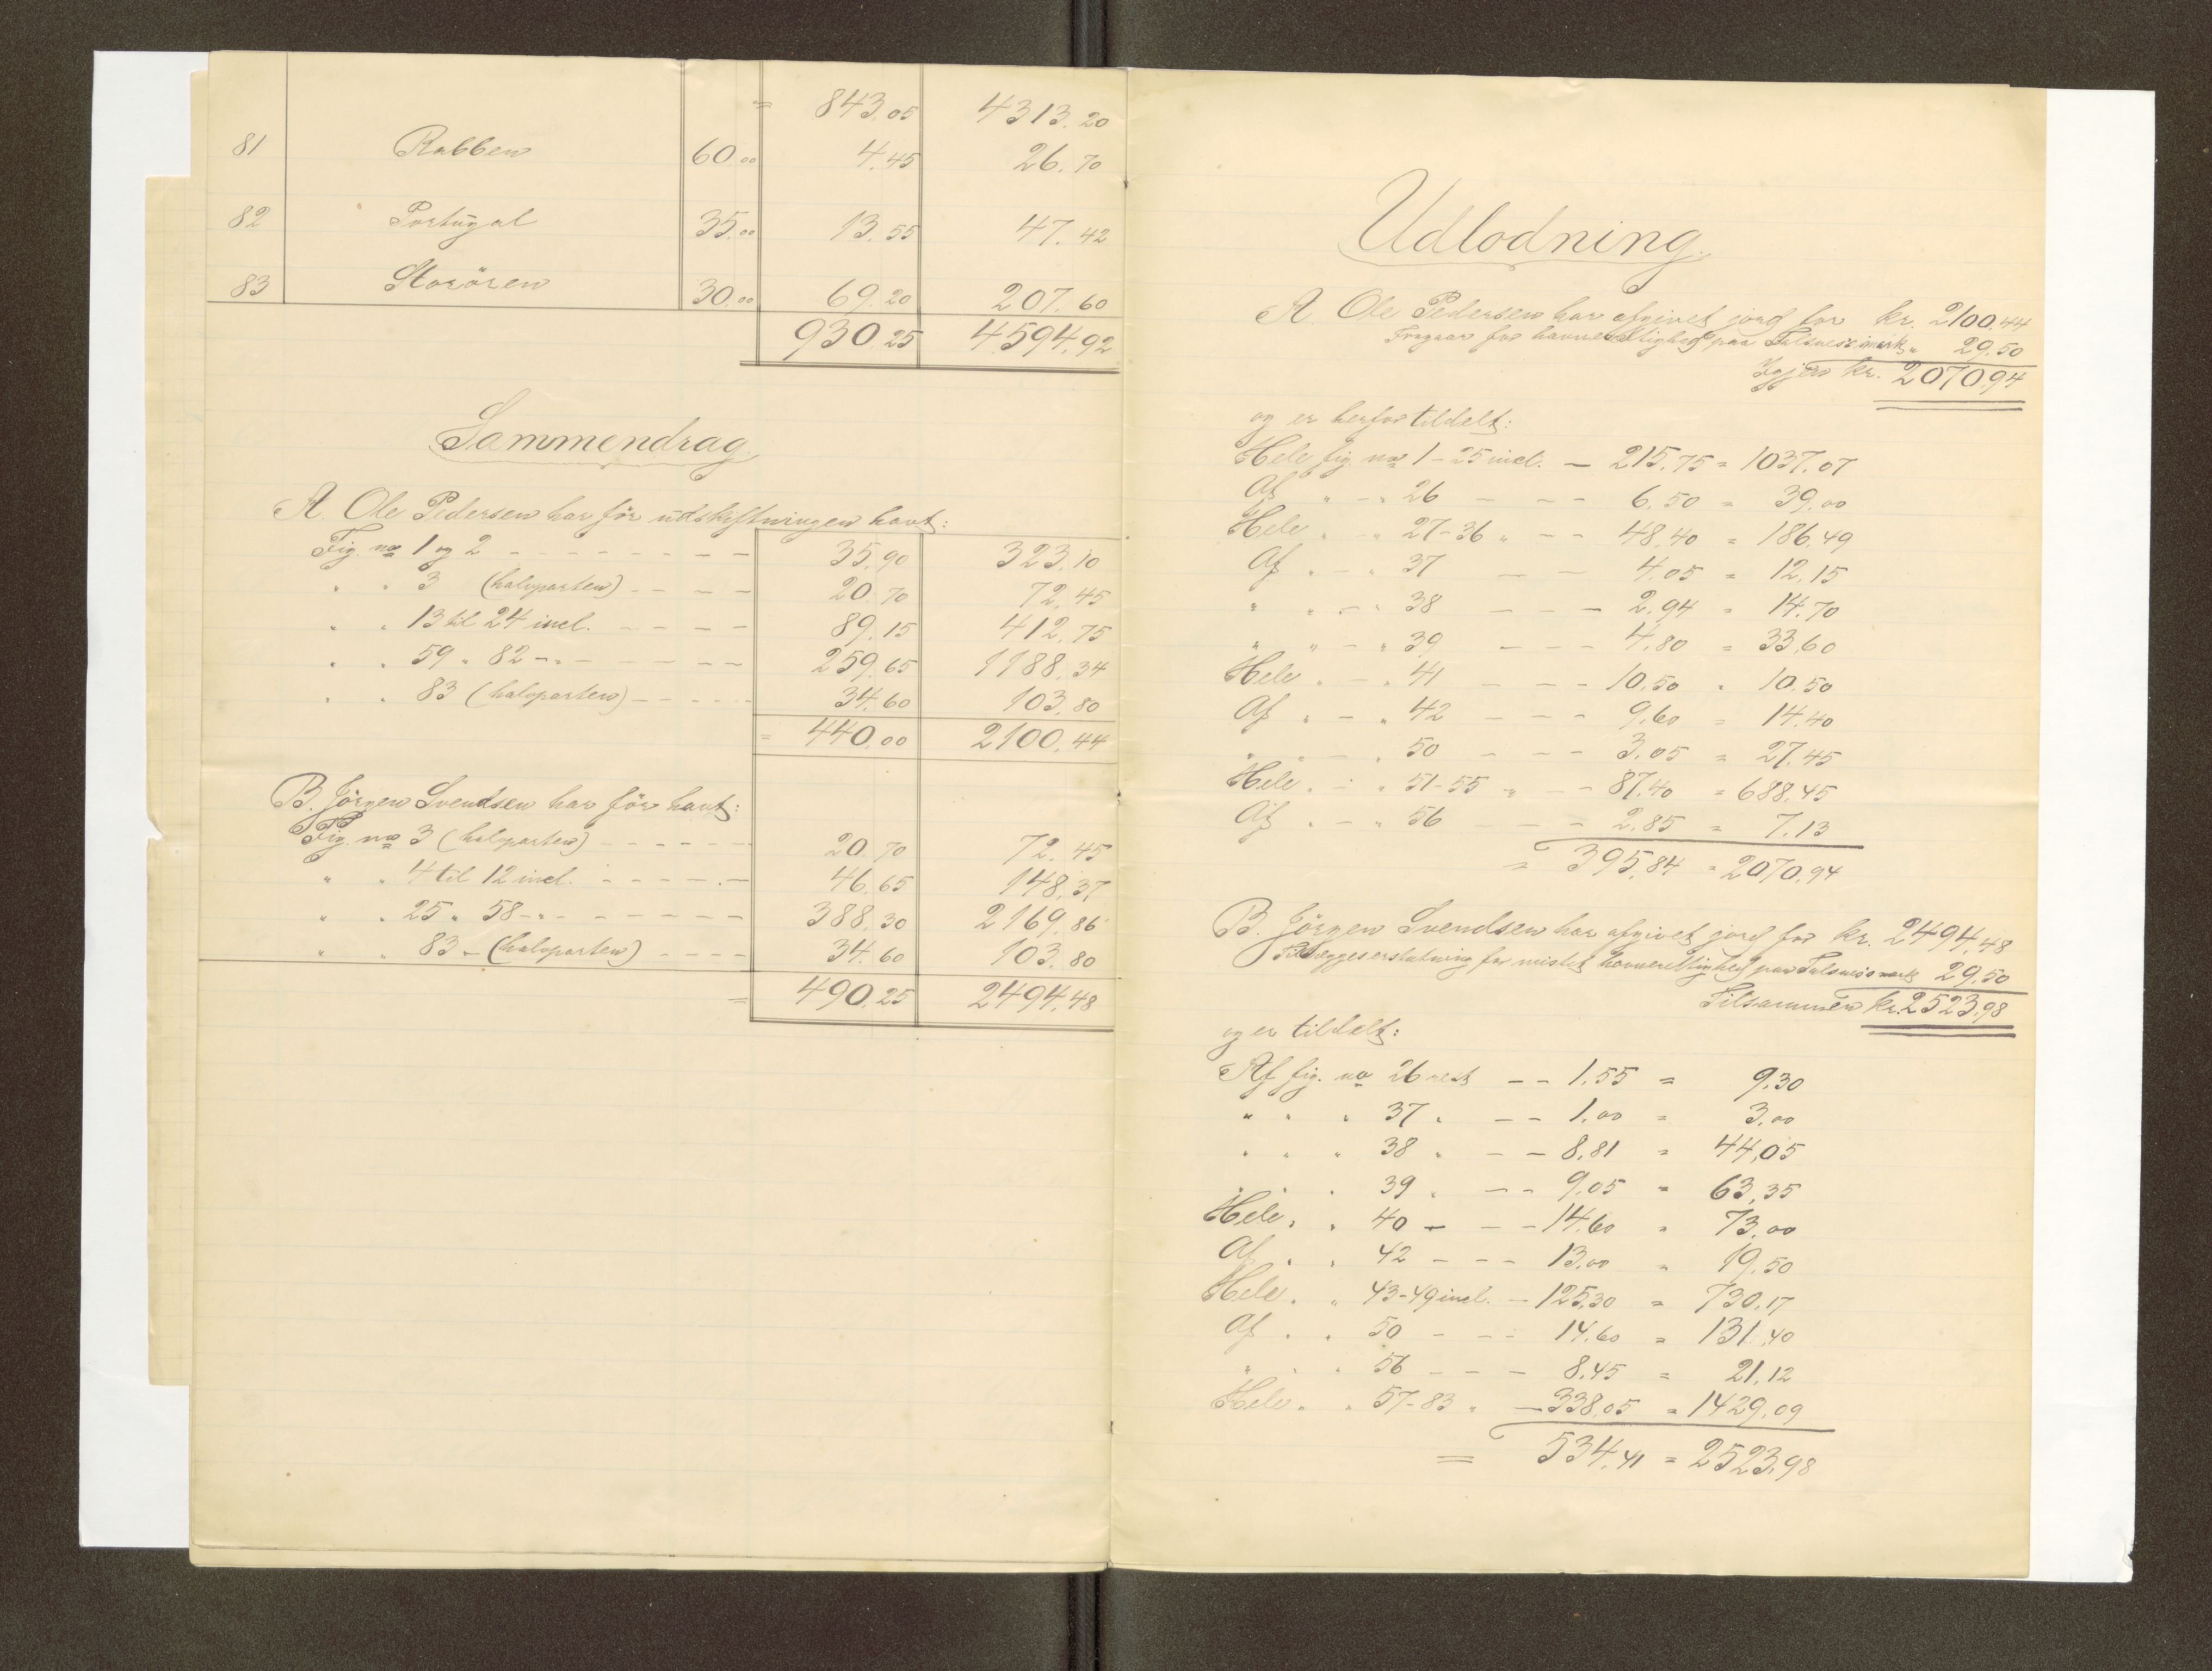 = 843.05 4313.20
81 Rabben 60.00 4.45 26.70
82 Portugal 35.00 13.55 47.42
83 Storören 30.00 69.20 207.60
930.25 4594.92
Sammendrag.
A. Ole Pedersen har för udskiftningen havt:
Fig. no 1 og 2 - - - - - - - - 35.90 323.10
" " 3 (halvparten) - - - - 20.70 72.45
" " 13 til 24 incl. - - - - 89.15 412.75
" " 59 " 82 - " - - - - - - 259.65 1188.34
" " 83 (halvparten) - - - - - 34.60 103.80
= 440.00 2100.44
B. Jörgen Svendsen har för havt:
Fig. no 3 (halvparten) - - - - - - 20.70 72.45
" " 4 til 12 incl. - - - - - - 46.65 148.37
" " 25 " 58 - " - - - - - - - 388.30 2169.86
" " 83 - (halvparten) - - - - 34.60 103.80
= 490.25 2494.48
Udlodning.
A. Ole Pedersen har afgivet jord for kr. 2100.44
Fragaar for havnerettighed paa Falsnes's mark " 29.50
Igjen kr. 2070.94
og er herfor tildelt:
Hele fig. no 1 - 25 incl. - 215.75 = 1037.07
Af " - " 26 - - - 6.50 = 39.00
Hele " - " 27-36 " - - 48.40 = 186.49
Af " - " 37 - - - 4.05 = 12.15
" " - " 38 - - - 2.94 = 14.70
" " - " 39 - - - 4.80 = 33.60
Hele " - " 41 - - - 10.50 " 10.50
Af " - " 42 - - - 9.60 = 14.40
" " - " 50 - - - 3.05 = 27.45
Hele " - " 51-55 " - - 87.40 = 688.45
Af " - " 56 - - - 2.85 = 7.13
= 395.84 = 2070.94
B. Jörgen Svendsen har afgivet jord for kr. 2494.48
Tillægges erstatning for mistet havnerettighed paa Falsnes's mark 29.50
Tilsammen kr. 2523.98
og er tildelt:
Af fig. no 26 rest - - 1.55 = 9.30
" " " 37 " - - 1.00 = 3.00
" " " 38 " - - 8.81 = 44.05
" " " 39 " - - 9.05 = 63.35
Hele " " 40 - - - 14.60 " 73.00
Af " " 42 - - - 13.00 " 19.50
Hele " " 43-49 incl. - 125.30 = 730.17
Af " " 50 - - - 14.60 = 131.40
" " " 56 - - - 8.45 = 21.12
Hele " " 57-83 " - 338.05 = 1429.09
= 534.41 = 2523.98